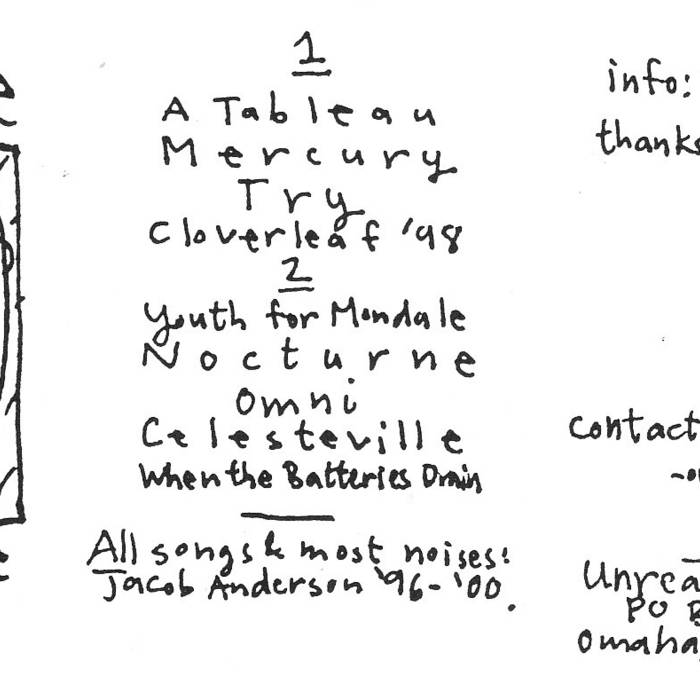 1
A Tableau
Mercury
Try
Cloverleaf '98
2
Youth for Mondale
Nocturne
Omni
Celesteville
When the Batteries Drain
All songs & most noises:
Jacob Anderson '96-'00.
info:
thanks
contact
Unrea
PO B
Omaha,